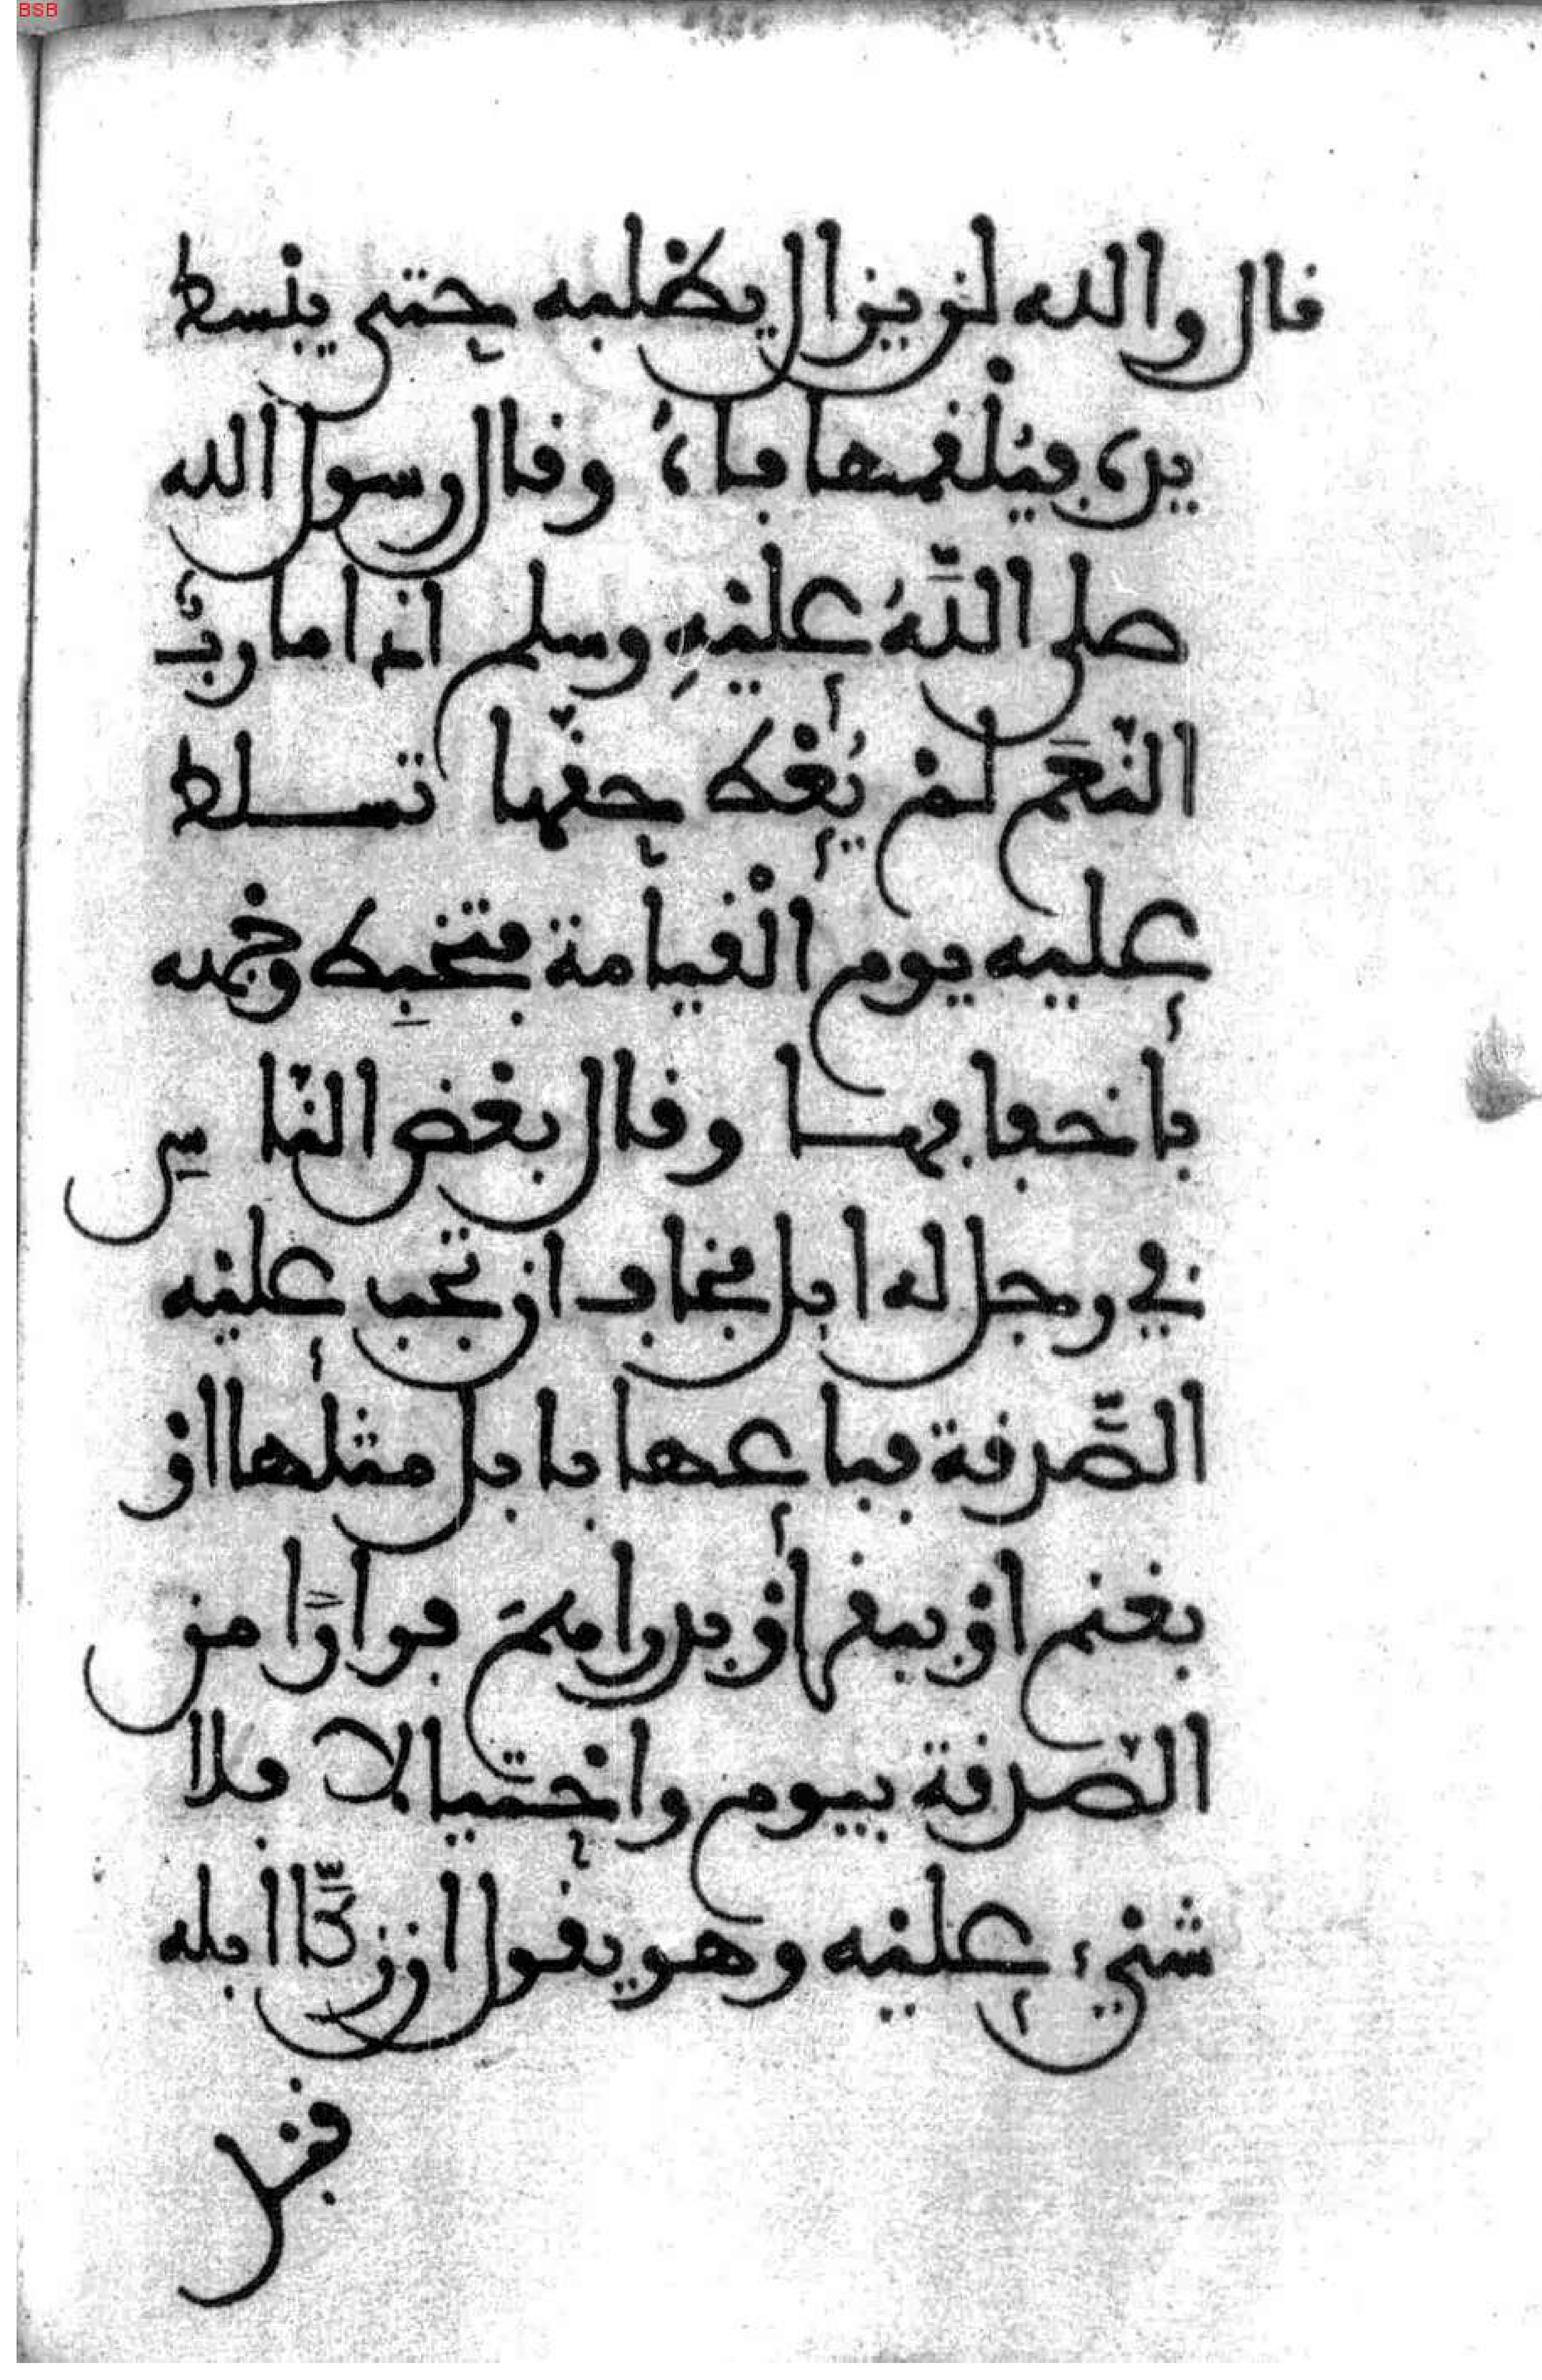 BSB
قال والله لن يزال يطلبه حتى يبسط
يده فيلقمها فاه وقال رسول الله
صلى اللّهُ عليْهِ وسلم اذا ما ربُّ
النّعَم لمْ يُعْط حقّها تسلط
عليه يوم الْقيامة فتخبِط وجْهه
باخفافها وقال بعْض النّاس
في رجل له ابل فخاف ان تجب عليْه
الصَّدقة فباعها بابل مثلها اوْ
بغنم اوْ ببقر اوْ بدراهمَ فرارًا من
الصّدقة بيوم واحْتيالا فلا
شيْء عليْه وهو يقول ان زكَّا ابله
قبْل